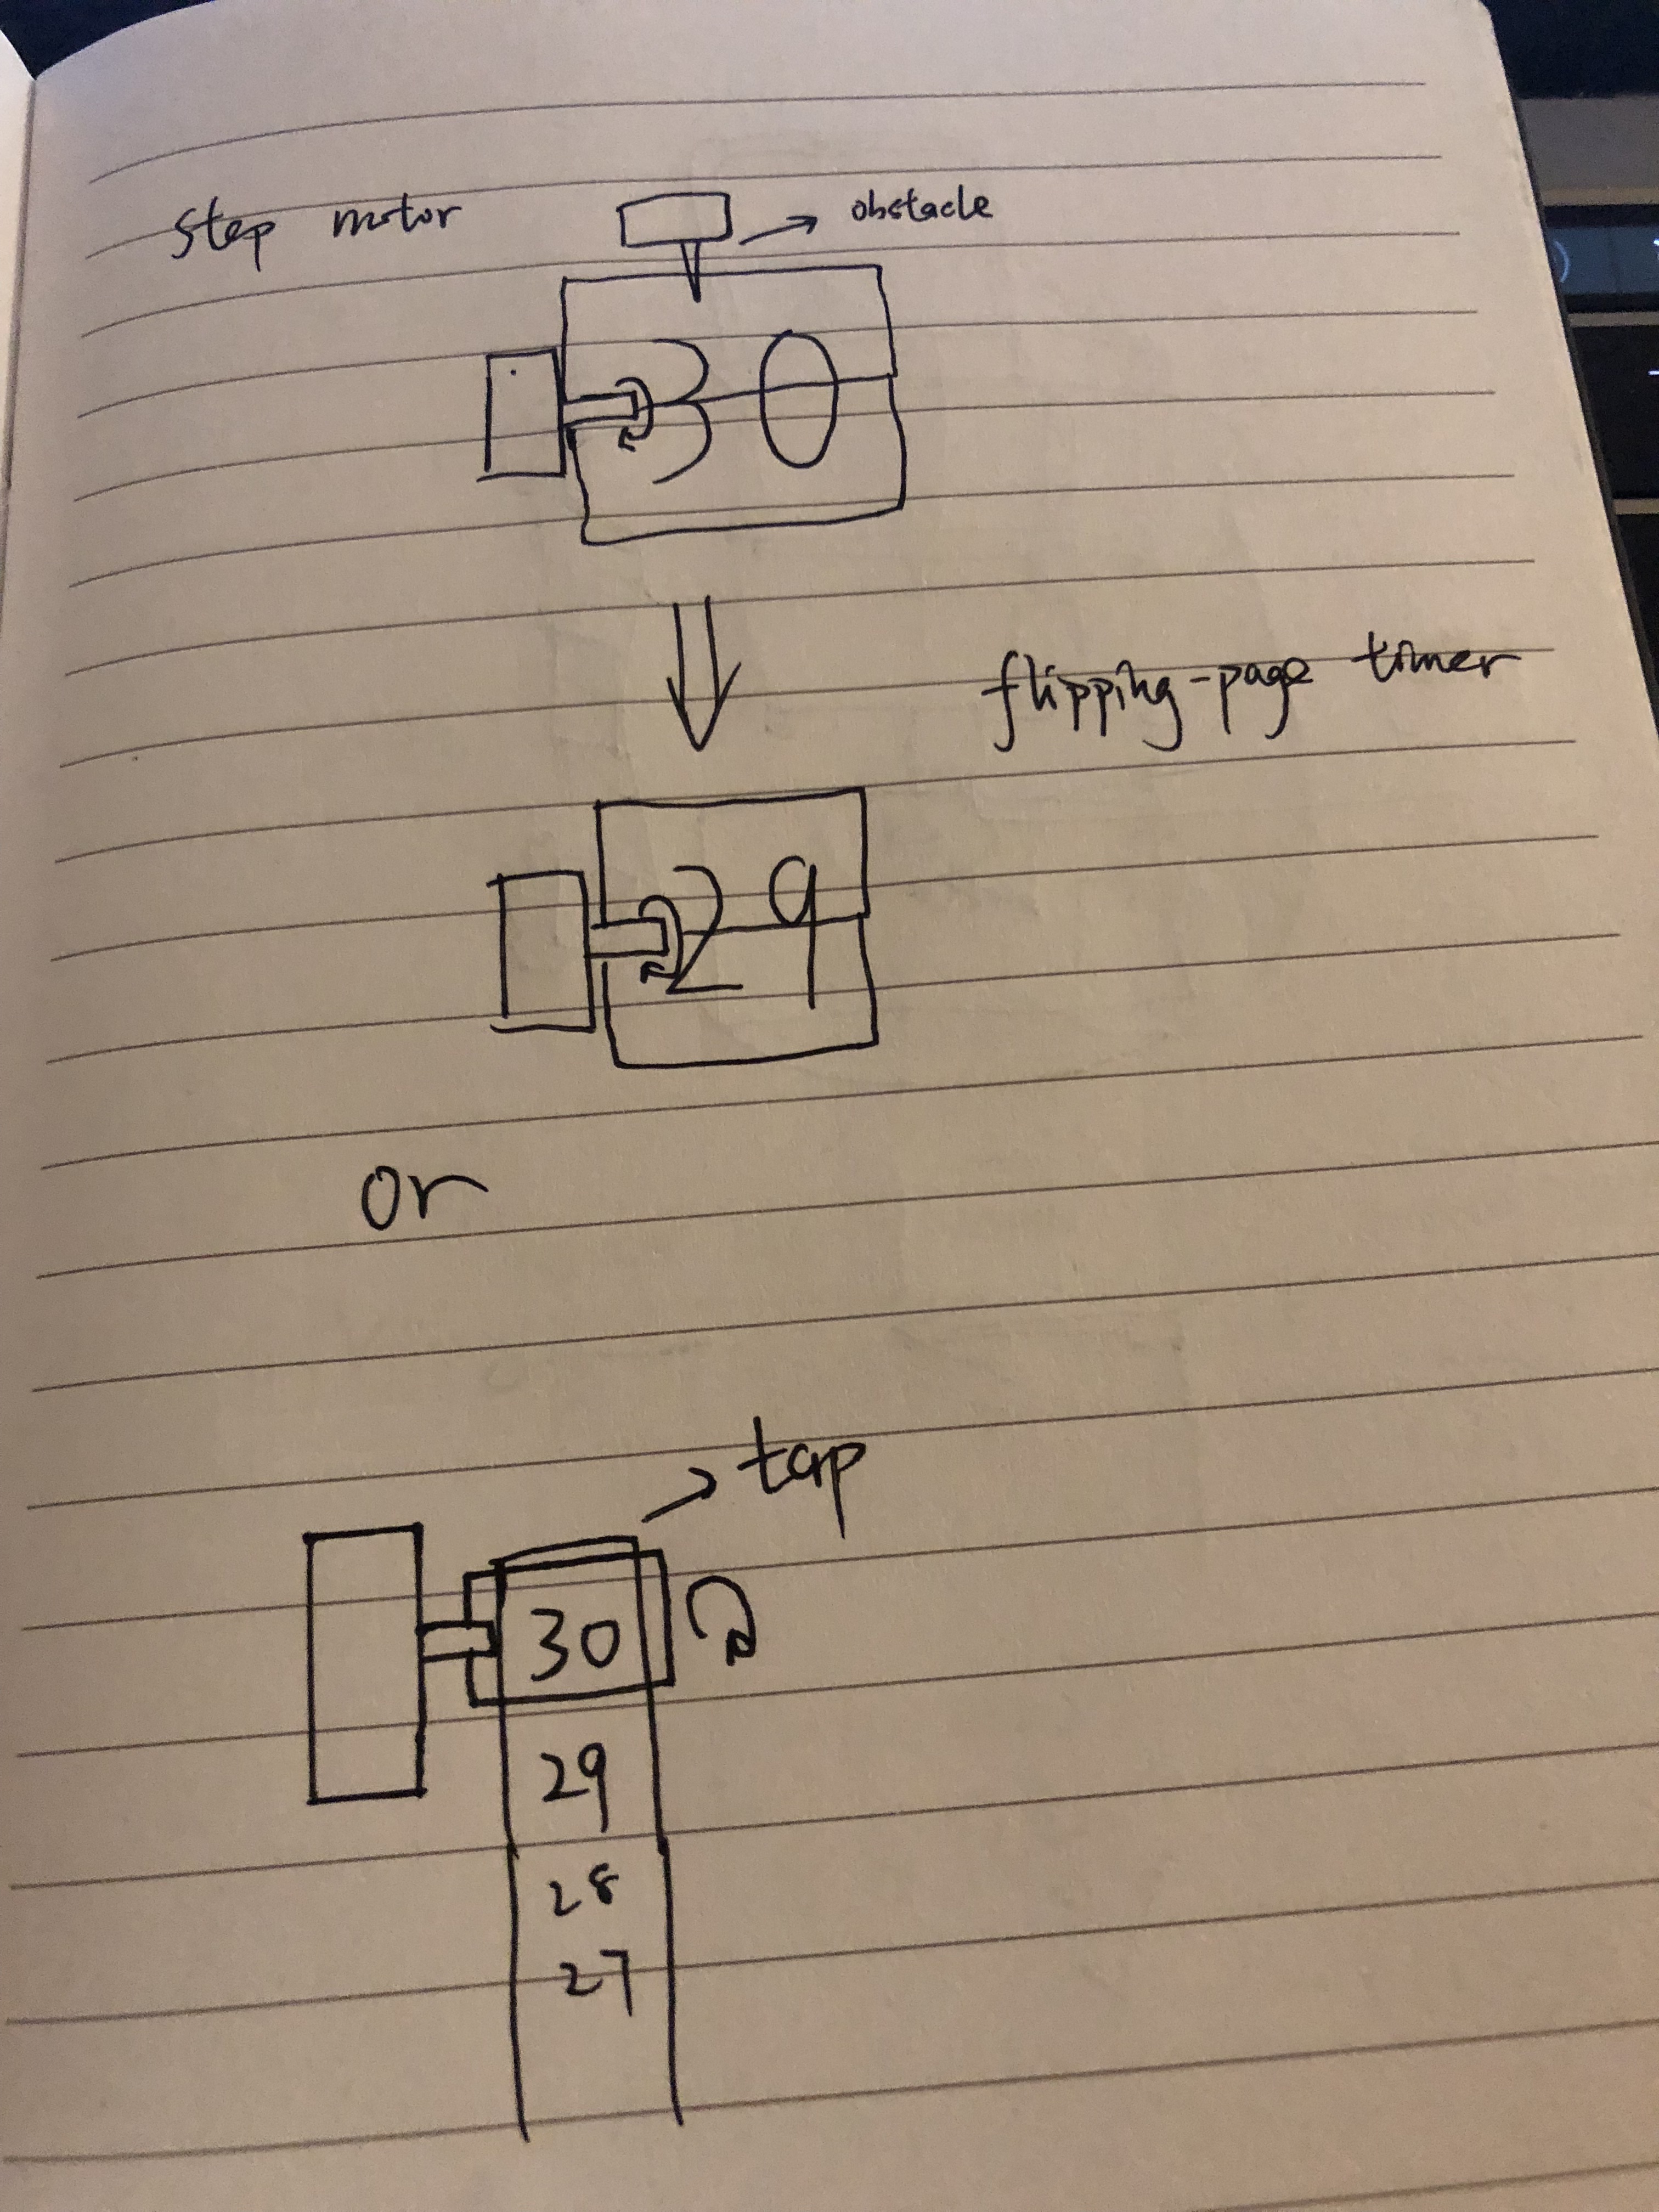 step motor
obstacle
30
flipping-page timer
29
or
tap
30
29
28
27